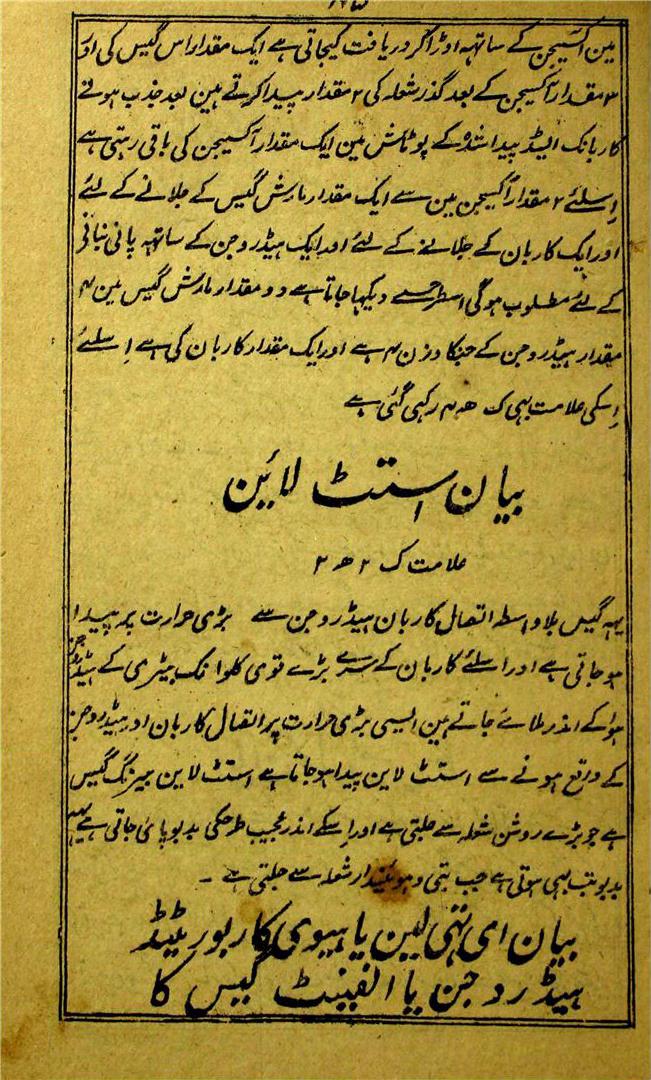 مین اکسیجن کے ساتهہ اوڑا کر دریافت کیجاتی ہے ایک مقدار اس گیس کی اور
۳ مقدار آکسیجن کے بعد گذر شعلہ کی ۲ مقدار پیدا کرتے ہین بعد جذب ہوتے
کاربانک ایسڈ پیدا شدہ کے پوٹاش مین ایک مقدار آکسیجن کی باقی رہتی ہے
اِسلئے ۲ مقدار آکسیجن مین سے ایک مقدار مارش گیس کے جلانے کے لئے
اور ایک کاربان کے جلانے کے لئے اور ایک ہیڈروجن کے ساتهہ پانی بنانی
کے لئے مطلوب ہوگی اسطرحسے دیکہا جاتا ہے دو مقدار مارش گیس مین ۴
مقدار ہیڈروجن کے جنکا وزن ۴ ہے اور ایک مقدار کاربان کی ہے اِسلئے
اِسکی علامت بہی ک ھ ۴ رکہی گئی ہے
بیان اسٹٹ لائین
علامت ک ۲ ھ ۲
یہہ گیس بلا واسطہ اتصال کاربان ہیڈروجن سے بڑی حرارت پر پیدا
ہو جاتی ہے اور اسلئے کاربان کے سرے بڑے قوی کلوانک بیٹری کے ہیڈروجن
ہوا کے اندر ملائے جاتے ہین ایسی بڑی حرارت پر اتصال کاربان اور ہیڈروجن
کے واقع ہونے سے اسٹٹ لاین پیدا ہو جاتا ہے اسٹٹ لاین بیرنگ گیس
ہے جو بڑے روشن شعلہ سے جلتی ہے اور اِسکے اندر عجیب طرحکی بدبو پائی جاتی ہے یہہ
بدبو تب بہی ہوتی ہے جب بتی دہوئیندار شعلہ سے جلتی ہے ۔
بیان ای تهی لین یا ہیوی کاربوریٹیڈ
ہیڈروجن یا الفینٹ گیس کا